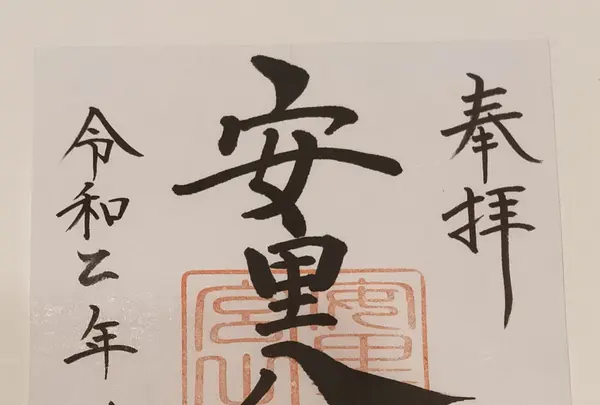 奉拝
安里八
令和二年